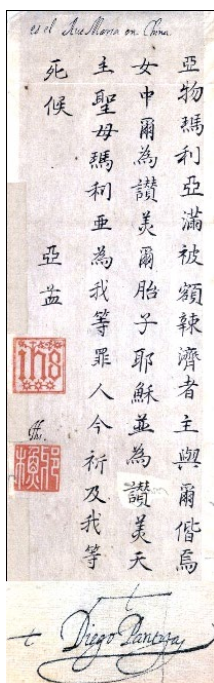 es el Ave Maria en China
亞物瑪利亞滿被額辣濟者主與爾偕焉
女中爾為讚美爾胎子耶穌並為讚美天
主聖母瑪利亞為我等罪人今祈及我等
死候 亞孟
ihs
Diego Pantoja